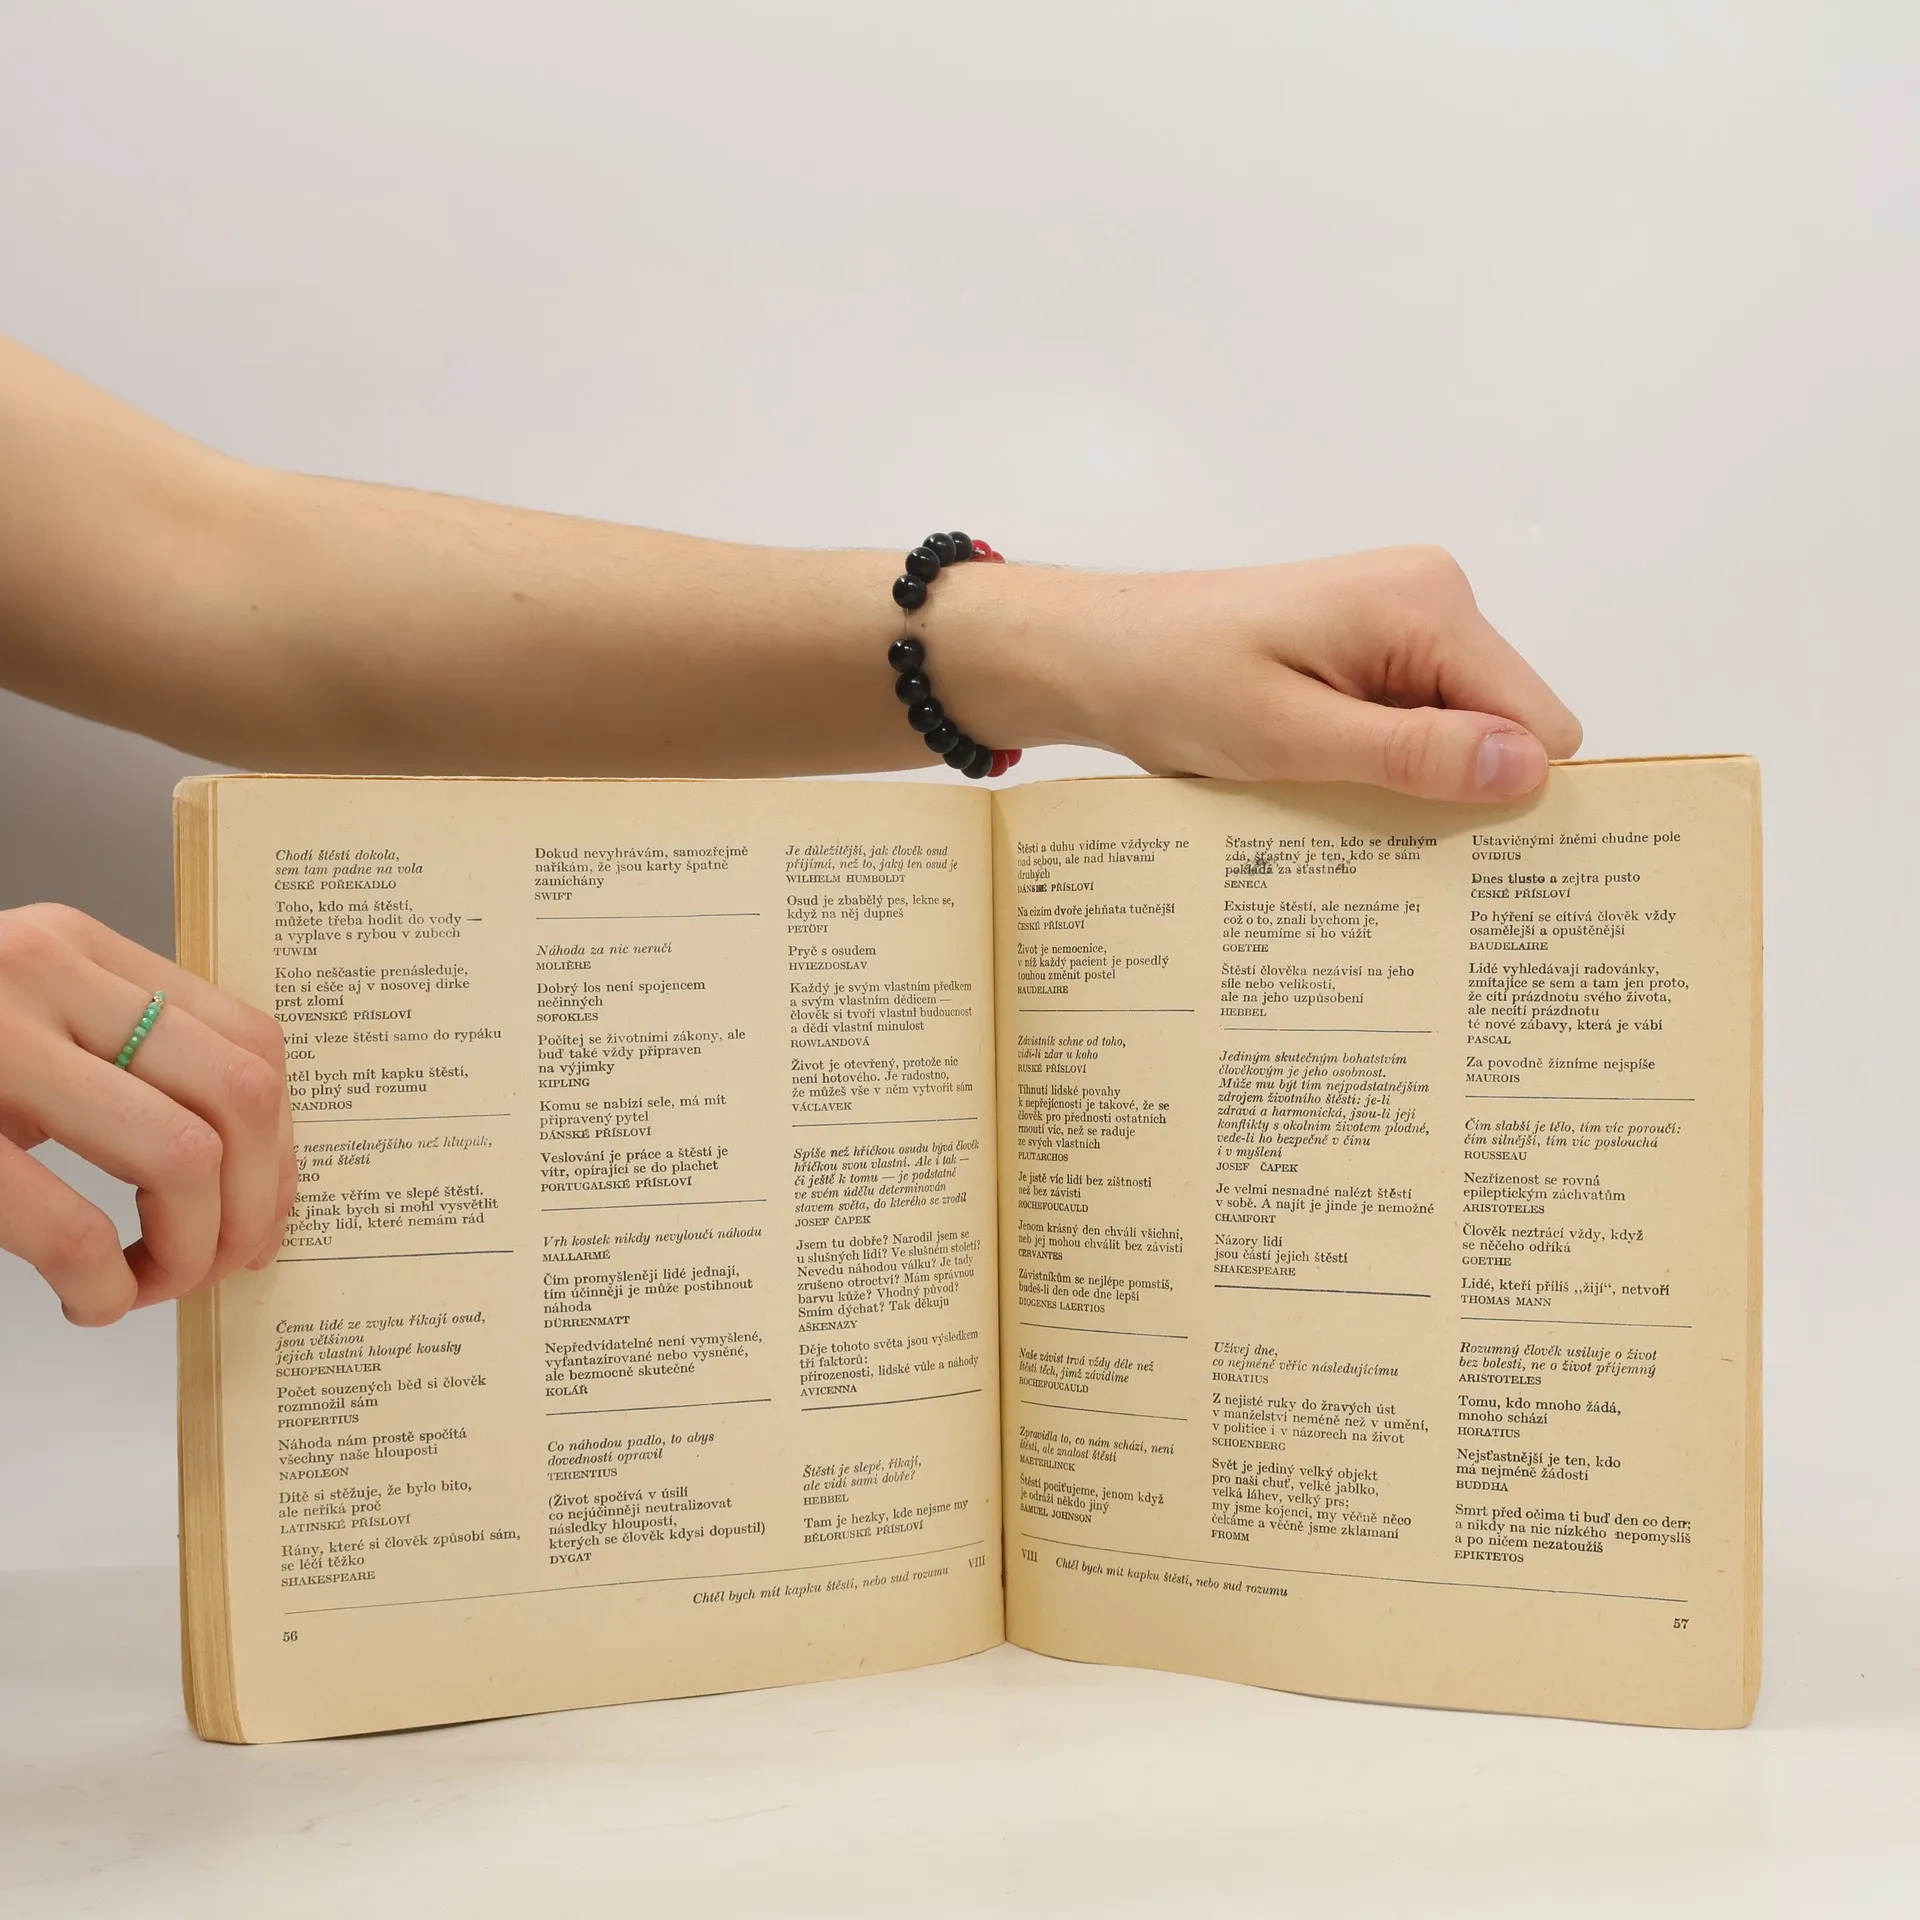 Chodí štěstí dokola,
sem tam padne na vola
ČESKÉ POŘEKADLO
Toho, kdo má štěstí,
můžete třeba hodit do vody —
a vyplave s rybou v zubech
TUWIM
Koho neščastie prenásleduje,
ten si ešče aj v nosovej dirke
prst zlomí
SLOVENSKÉ PŘÍSLOVÍ
vini vleze štěstí samo do rypáku
OGOL
htěl bych mít kapku štěstí,
bo plný sud rozumu
NANDROS
c nesnesitelnějšího než hlupák,
rý má štěstí
ERO
šemže věřím ve slepé štěstí.
k jinak bych si mohl vysvětlit
spěchy lidí, které nemám rád
OCTEAU
Čemu lidé ze zvyku říkají osud,
jsou většinou
jejich vlastní hloupé kousky
SCHOPENHAUER
Počet souzených běd si člověk
rozmnožil sám
PROPERTIUS
Náhoda nám prostě spočítá
všechny naše hlouposti
NAPOLEON
Dítě si stěžuje, že bylo bito,
ale neříká proč
LATINSKÉ PŘÍSLOVÍ
Rány, které si člověk způsobí sám,
se léčí těžko
SHAKESPEARE
Dokud nevyhrávám, samozřejmě
naříkám, že jsou karty špatně
zamíchány
SWIFT
Náhoda za nic neručí
MOLIÈRE
Dobrý los není spojencem
nečinných
SOFOKLES
Počítej se životními zákony, ale
buď také vždy připraven
na výjimky
KIPLING
Komu se nabízí sele, má mít
připravený pytel
DÁNSKÉ PŘÍSLOVÍ
Veslování je práce a štěstí je
vítr, opírající se do plachet
PORTUGALSKÉ PŘÍSLOVÍ
Vrh kostek nikdy nevyloučí náhodu
MALLARMÉ
Čím promyšleněji lidé jednají,
tím účinněji je může postihnout
náhoda
DÜRRENMATT
Nepředvídatelné není vymyšlené,
vyfantazírované nebo vysněné,
ale bezmocně skutečné
KOLÁŘ
Co náhodou padlo, to abys
dovedností opravil
TERENTIUS
(Život spočívá v úsilí
co nejúčinněji neutralizovat
následky hlouposti,
kterých se člověk kdysi dopustil)
DYGAT
Je důležitější, jak člověk osud
přijímá, než to, jaký ten osud je
WILHELM HUMBOLDT
Osud je zbabělý pes, lekne se,
když na něj dupneš
PETÖFI
Pryč s osudem
HVIEZDOSLAV
Každý je svým vlastním předkem
a svým vlastním dědicem —
člověk si tvoří vlastní budoucnost
a dědí vlastní minulost
ROWLANDOVÁ
Život je otevřený, protože nic
není hotového. Je radostno,
že můžeš vše v něm vytvořit sám
VÁCLAVEK
Spíše než hříčkou osudu bývá člověk
hříčkou svou vlastní. Ale i tak —
či ještě k tomu — je podstatně
ve svém údělu determinován
stavem světa, do kterého se zrodil
JOSEF ČAPEK
Jsem tu dobře? Narodil jsem se
u slušných lidí? Ve slušném století?
Nevedu náhodou válku? Je tady
zrušeno otroctví? Mám správnou
barvu kůže? Vhodný původ?
Smím dýchat? Tak děkuju
AŠKENAZY
Děje tohoto světa jsou výsledkem
tří faktorů:
přirozenosti, lidské vůle a náhody
AVICENNA
Štěstí je slepé, říkají,
ale vidí sami dobře?
HEBBEL
Tam je hezky, kde nejsme my
BĚLORUSKÉ PŘÍSLOVÍ
Chtěl bych mít kapku štěstí, nebo sud rozumu VIII
56
Štěstí a duhu vidíme vždycky ne
nad sebou, ale nad hlavami
druhých
DÁNSKÉ PŘÍSLOVÍ
Na cizím dvoře jehňata tučnější
ČESKÉ PŘÍSLOVÍ
Život je nemocnice,
v níž každý pacient je posedlý
touhou změnit postel
BAUDELAIRE
Závistník schne od toho,
vidí-li zdar u koho
RUSKÉ PŘÍSLOVÍ
Tíhnutí lidské povahy
k nepřejícnosti je takové, že se
člověk pro přednosti ostatních
rmoutí víc, než se raduje
ze svých vlastních
PLUTARCHOS
Je jistě víc lidí bez zištnosti
než bez závisti
ROCHEFOUCAULD
Jenom krásný den chválí všichni,
neb jej mohou chválit bez závisti
CERVANTES
Závistníkům se nejlépe pomstíš,
budeš-li den ode dne lepší
DIOGENES LAERTIOS
Naše závist trvá vždy déle než
štěstí těch, jimž závidíme
ROCHEFOUCAULD
Zpravidla to, co nám schází, není
štěstí, ale znalost štěstí
MAETERLINCK
Štěstí pociťujeme, jenom když
je odráží někdo jiný
SAMUEL JOHNSON
Šťastný není ten, kdo se druhým
zdá, šťastný je ten, kdo se sám
pokládá za šťastného
SENECA
Existuje štěstí, ale neznáme je;
což o to, znali bychom je,
ale neumíme si ho vážit
GOETHE
Štěstí člověka nezávisí na jeho
síle nebo velikosti,
ale na jeho uzpůsobení
HEBBEL
Jediným skutečným bohatstvím
člověkovým je jeho osobnost.
Může mu být tím nejpodstatnějším
zdrojem životního štěstí: je-li
zdravá a harmonická, jsou-li její
konflikty s okolním životem plodné,
vede-li ho bezpečně v činu
i v myšlení
JOSEF ČAPEK
Je velmi nesnadné nalézt štěstí
v sobě. A najít je jinde je nemožné
CHAMFORT
Názory lidí
jsou částí jejich štěstí
SHAKESPEARE
Užívej dne,
co nejméně věříc následujícímu
HORATIUS
Z nejisté ruky do žravých úst
v manželství neméně než v umění,
v politice i v názorech na život
SCHOENBERG
Svět je jediný velký objekt
pro naši chuť, velké jablko,
velká láhev, velký prs;
my jsme kojenci, my věčně něco
čekáme a věčně jsme zklamaní
FROMM
Ustavičnými žněmi chudne pole
OVIDIUS
Dnes tlusto a zejtra pusto
ČESKÉ PŘÍSLOVÍ
Po hýření se cítívá člověk vždy
osamělejší a opuštěnější
BAUDELAIRE
Lidé vyhledávají radovánky,
zmítajíce se sem a tam jen proto,
že cítí prázdnotu svého života,
ale necítí prázdnotu
té nové zábavy, která je vábí
PASCAL
Za povodně žízníme nejspíše
MAUROIS
Čím slabší je tělo, tím víc poroučí:
čím silnější, tím víc poslouchá
ROUSSEAU
Nezřízenost se rovná
epileptickým záchvatům
ARISTOTELES
Člověk neztrácí vždy, když
se něčeho odříká
GOETHE
Lidé, kteří příliš ,,žijí“, netvoří
THOMAS MANN
Rozumný člověk usiluje o život
bez bolesti, ne o život příjemný
ARISTOTELES
Tomu, kdo mnoho žádá,
mnoho schází
HORATIUS
Nejšťastnější je ten, kdo
má nejméně žádostí
BUDDHA
Smrt před očima ti buď den co den;
a nikdy na nic nízkého nepomyslíš
a po ničem nezatoužíš
EPIKTETOS
VIII Chtěl bych mít kapku štěstí, nebo sud rozumu
57